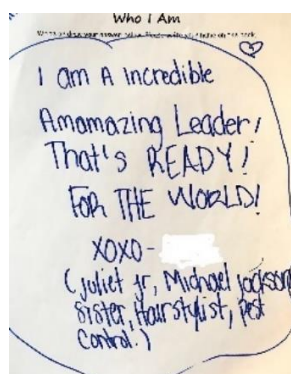 Who I Am
I am A Incredible
Amamazing Leader!
That's READY!
FOR THE WORLD!
XOXO-
(Juliet jr, Michael jackson
sister, Hairstylist, Pest
Control.)